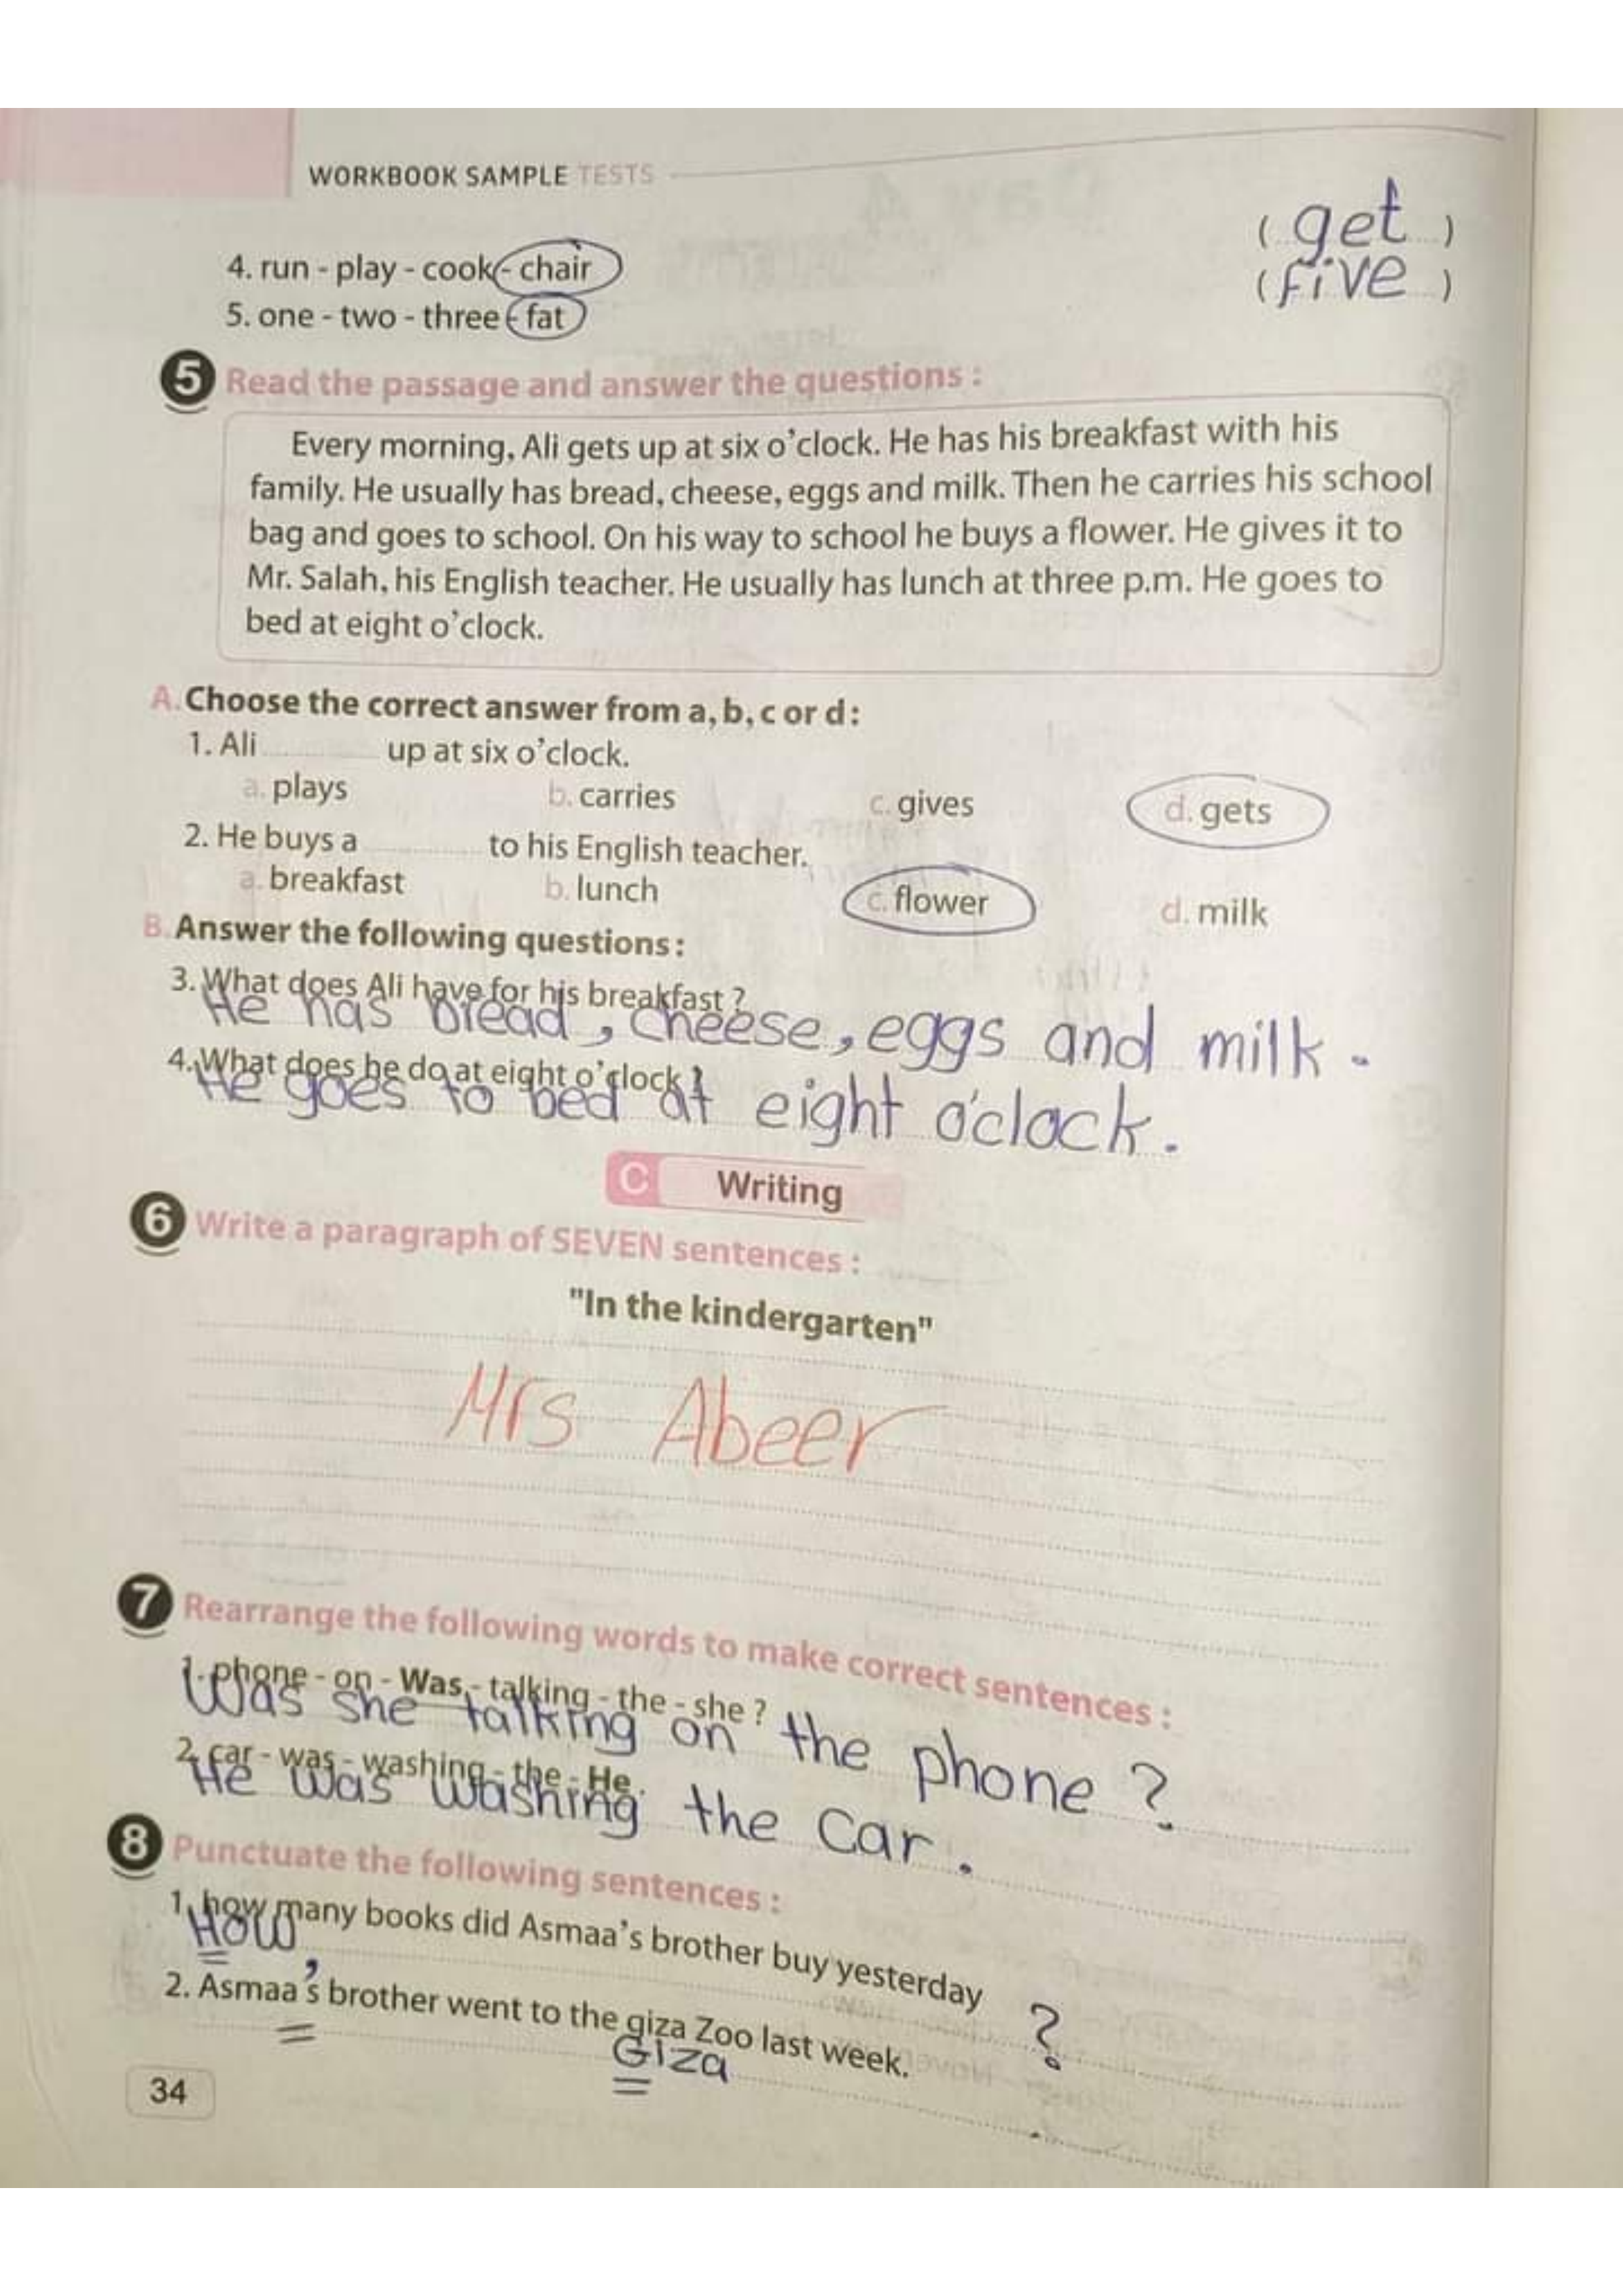 WORKBOOK SAMPLE TESTS
4. run - play - cook - chair ( get )
5. one - two - three - fat ( five )
5 Read the passage and answer the questions :
Every morning, Ali gets up at six o'clock. He has his breakfast with his
family. He usually has bread, cheese, eggs and milk. Then he carries his school
bag and goes to school. On his way to school he buys a flower. He gives it to
Mr. Salah, his English teacher. He usually has lunch at three p.m. He goes to
bed at eight o'clock.
A. Choose the correct answer from a, b, c or d :
1. Ali ............ up at six o'clock.
a. plays b. carries c. gives d. gets
2. He buys a ............ to his English teacher.
a. breakfast b. lunch c. flower d. milk
B. Answer the following questions :
3. What does Ali have for his breakfast ?
He has bread, cheese, eggs and milk.
4. What does he do at eight o'clock ?
He goes to bed at eight o'clock.
C Writing
6 Write a paragraph of SEVEN sentences :
"In the kindergarten"
Mrs Abeer
7 Rearrange the following words to make correct sentences :
1. phone - on - Was - talking - the - she ?
Was she talking on the phone ?
2. car - was - washing - the - He .
He was washing the car .
8 Punctuate the following sentences :
1. how many books did Asmaa's brother buy yesterday
How ?
2. Asmaa's brother went to the giza Zoo last week.
Giza
34